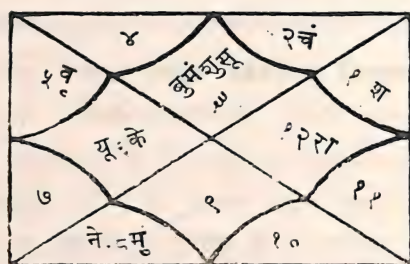 ४ २चं
५ वृ बुमंशुसू १ श
३
यू ६ के १२रा
७ ९ ११
ने ८ मुं १०